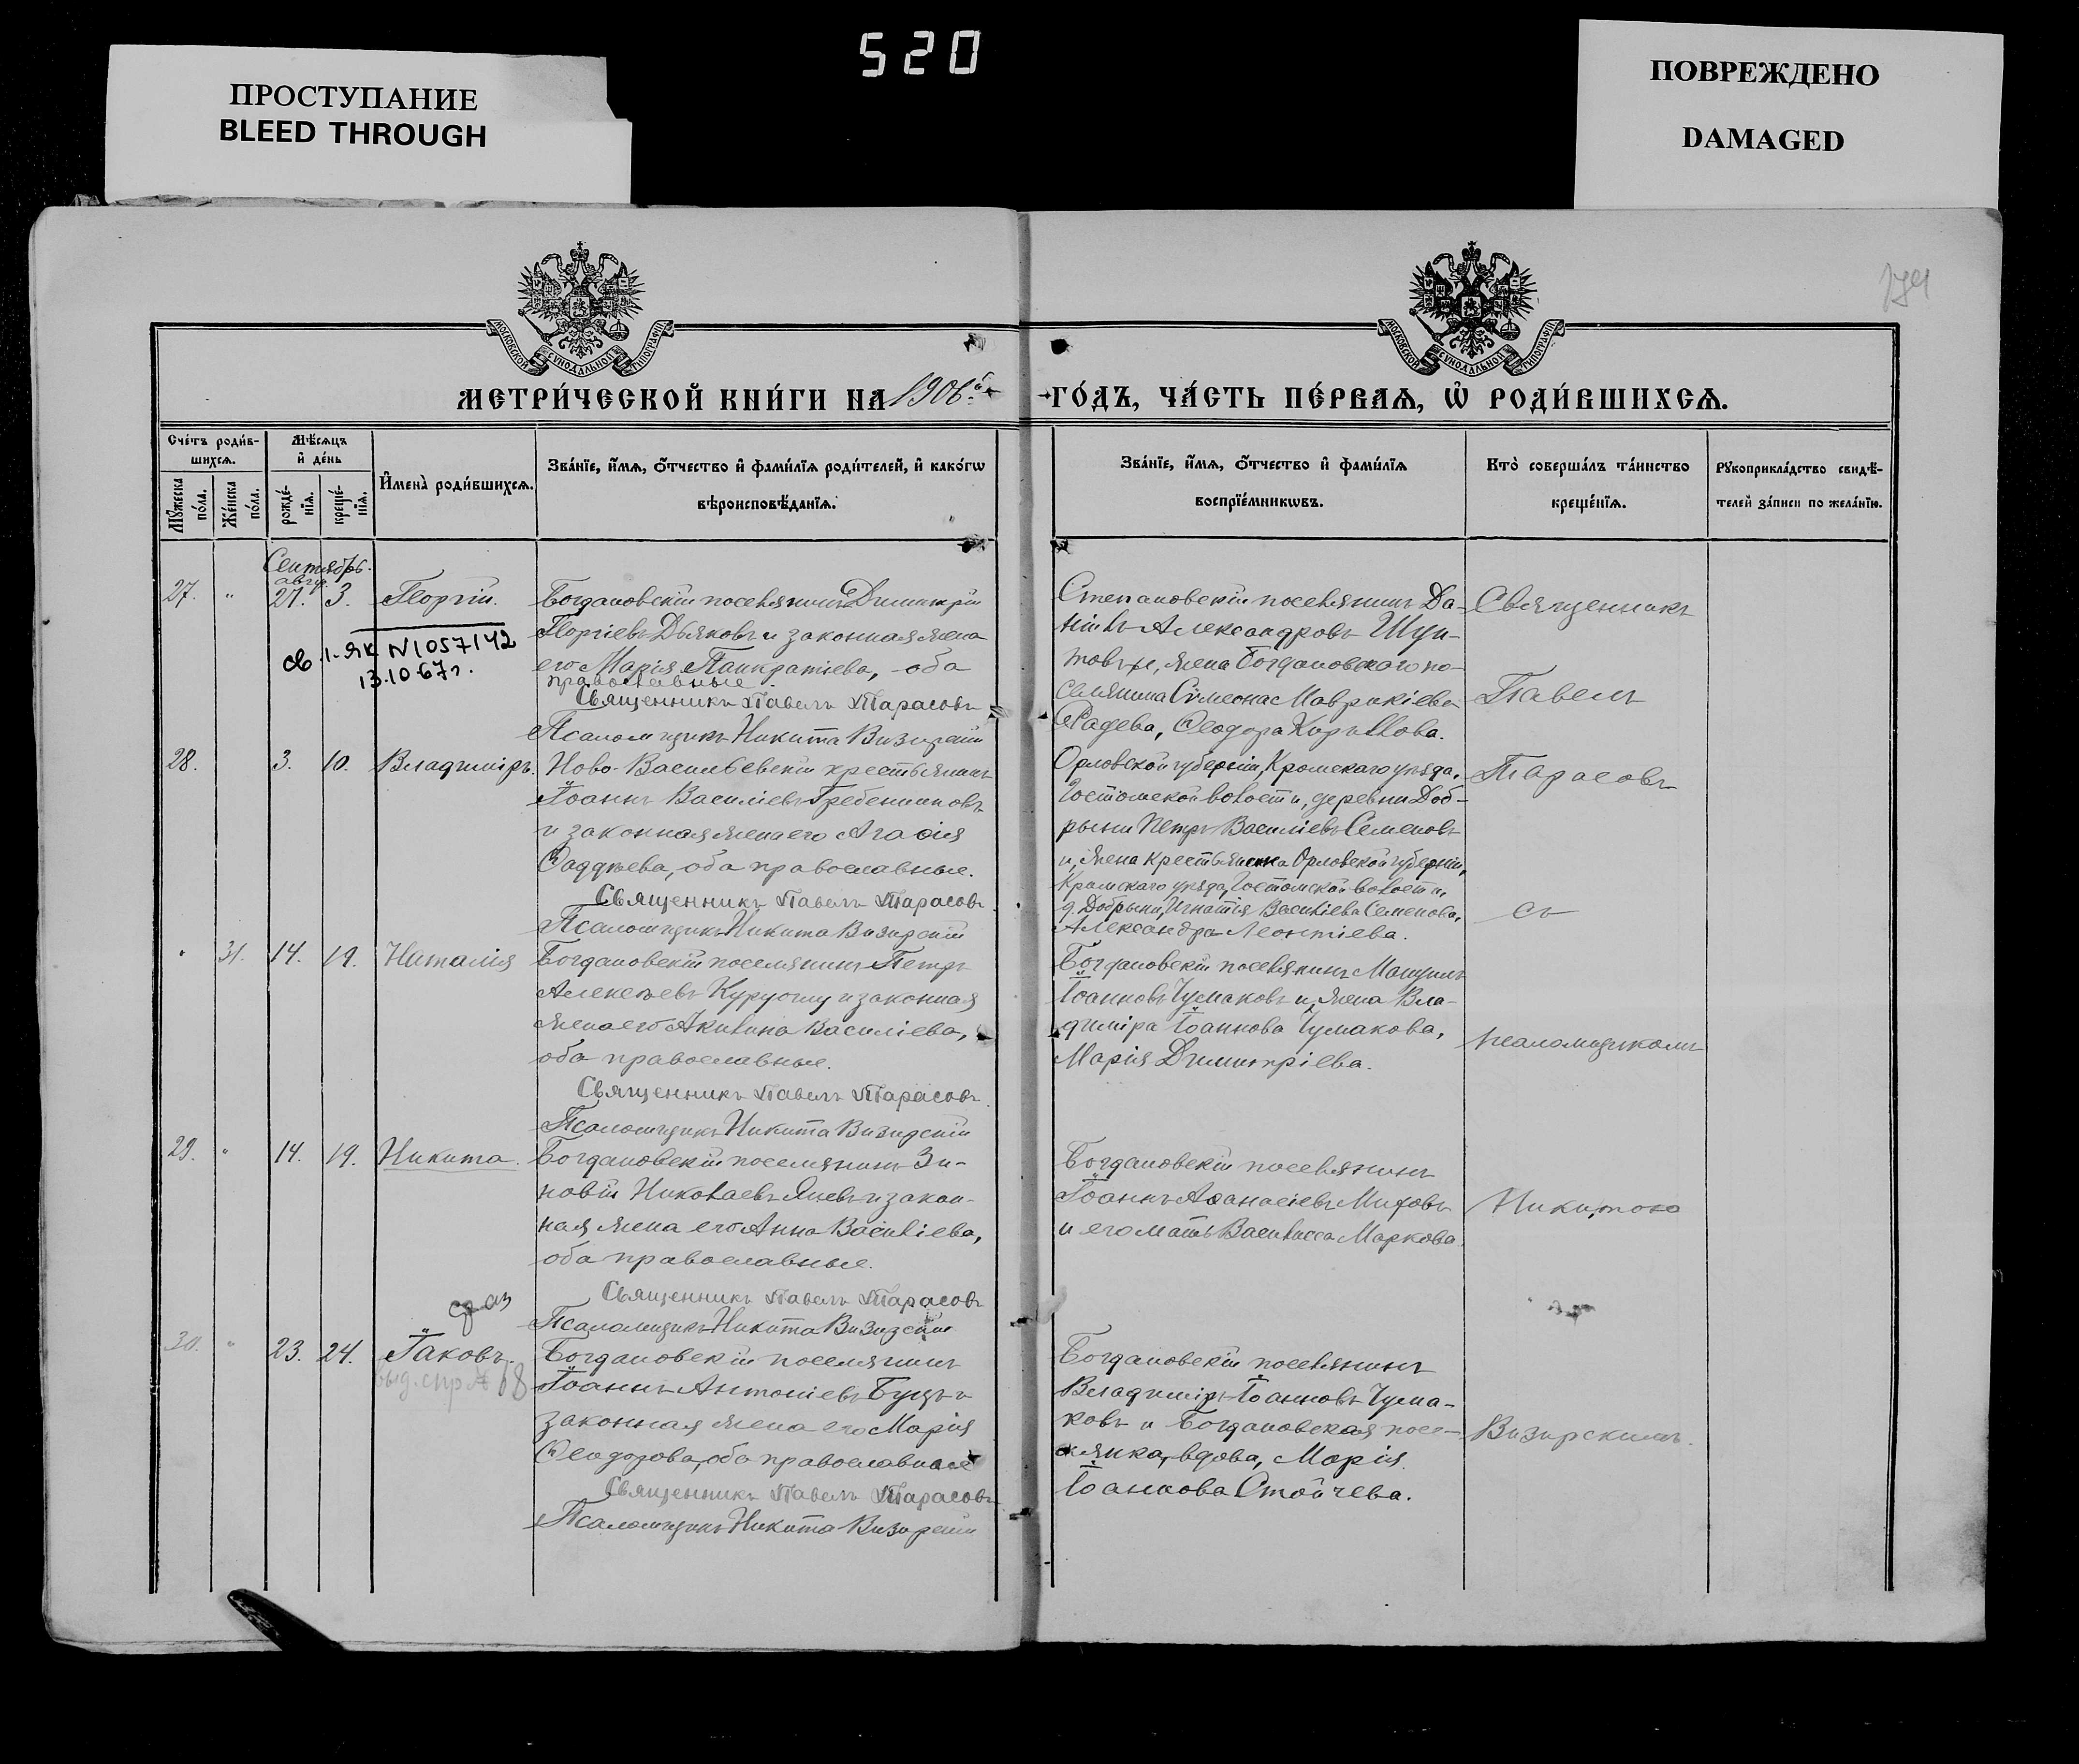 520
ПРОСТУПАНИЕ
BLEED THROUGH
ПОВРЕЖДЕНО
DAMAGED
МОСКОВСКОЙ СѴНОДАЛЬНОЙ ТИПОГРАФІИ
МОСКОВСКОЙ СѴНОДАЛЬНОЙ ТИПОГРАФІИ
МЕТРИ́ЧЕСКОЙ КНИ́ГИ НА 1906й
ГО́ДЪ, ЧА́СТЬ ПЕ́РВАѦ, Ѡ҆ РОДИ́ВШИХСѦ.
Сче́тъ роди́в-
шихсѧ.
Мѣ́сѧцъ
и҆ де́нь
Мꙋ́жеска
по́ла.
Же́нска
по́ла.
рожде́-
нїѧ.
креще́-
нїѧ.
И҆мена̀ роди́вшихсѧ.
Зва́нїе, и҆́мѧ, ѻ҆́тчество и҆ фами́лїѧ роди́телей, и҆ како́гѡ
вѣроисповѣ́данїѧ.
Зва́нїе, и҆́мѧ, ѻ҆́тчество и҆ фами́лїѧ
воспрїе́мникѡвъ.
Кто̀ соверша́лъ та́инство
креще́нїѧ.
Рꙋкоприкла́дство свидѣ́-
телей за́писи по жела́нїю.
Сентябрь.
авгу.
27. " 27. 3. Георгій.
св. 1-ЯК N1057142
13.10.67г.
Богдановскій поселянинъ Димитрій
Георгіевъ Дьяковъ и законная жена
его Марія Панкратіева, - оба
православные.
Священникъ Павелъ Тарасовъ
Псаломщикъ Никита Визирскій
Степановскій поселянинъ Да-
ніилъ Александровъ
жена Богдановскаго по-
селянина Симеона Маврикіева
Радева, Ѳеодора Кирьллова.
28. 3. 10. Владиміръ.
Ново-Васильевскій крестьянинъ
Іоаннъ Василіевъ Гребенниковъ
и законная жена его Агаѳія
Ѳаддѣева, оба православные.
Священникъ Павелъ Тарасовъ
Псаломщикъ Никита Визирскій
Орловской губерніи, Кромскаго уѣзда,
Гостомской волости, деревни Доб-
рыни Петръ Василіевъ Семеновъ
и, жена крестьянина Орловской губерніи,
Кромскаго уѣзда, Гостомской волости,
д. Добрыни, Игнатія Василіева Семенова,
Александра Леонтіева.
" 31. 14. 19. Наталія
Богдановскій поселянинъ Петръ
Алексѣевъ Куруогну и законная
жена его Акилина Василіева,
оба православные.
Священникъ Павелъ Тарасовъ.
Псаломщикъ Никита Визирскій
Богдановскій поселянинъ Мануилъ
Іоанновъ Чумаковъ и, жена Вла-
диміра Іоаннова Чумакова,
Марія Димитріева.
29. " 14. 19. Никита.
Богдановскій поселянинъ Зи-
новій Николаевъ Яневъ и закон-
ная жена его Анна Василіева,
оба православные.
Священникъ Павелъ Тарасовъ
Псаломщикъ Никита Визирскій
Богдановскій поселянинъ
Іоаннъ Аѳанасіевъ Миховъ
и его мать Василисса Маркова.
30. " 23. 24. Іаковъ.
выд. спр № 68
Богдановскій поселянинъ
Іоаннъ Антоніевъ Буцъ и
законная жена его Марія
Ѳеодорова, оба православные
Священникъ Павелъ Тарасовъ
Псаломщикъ Никита Визирскій
Богдановскій поселянинъ
Владиміръ Іоанновъ Чума-
ковъ и Богдановская посе-
лянка, вдова, Марія
Іоаннова Стойчева.
Священникъ
Павелъ
Тарасовъ
съ
псаломщикомъ
Никитою
Визирскимъ.